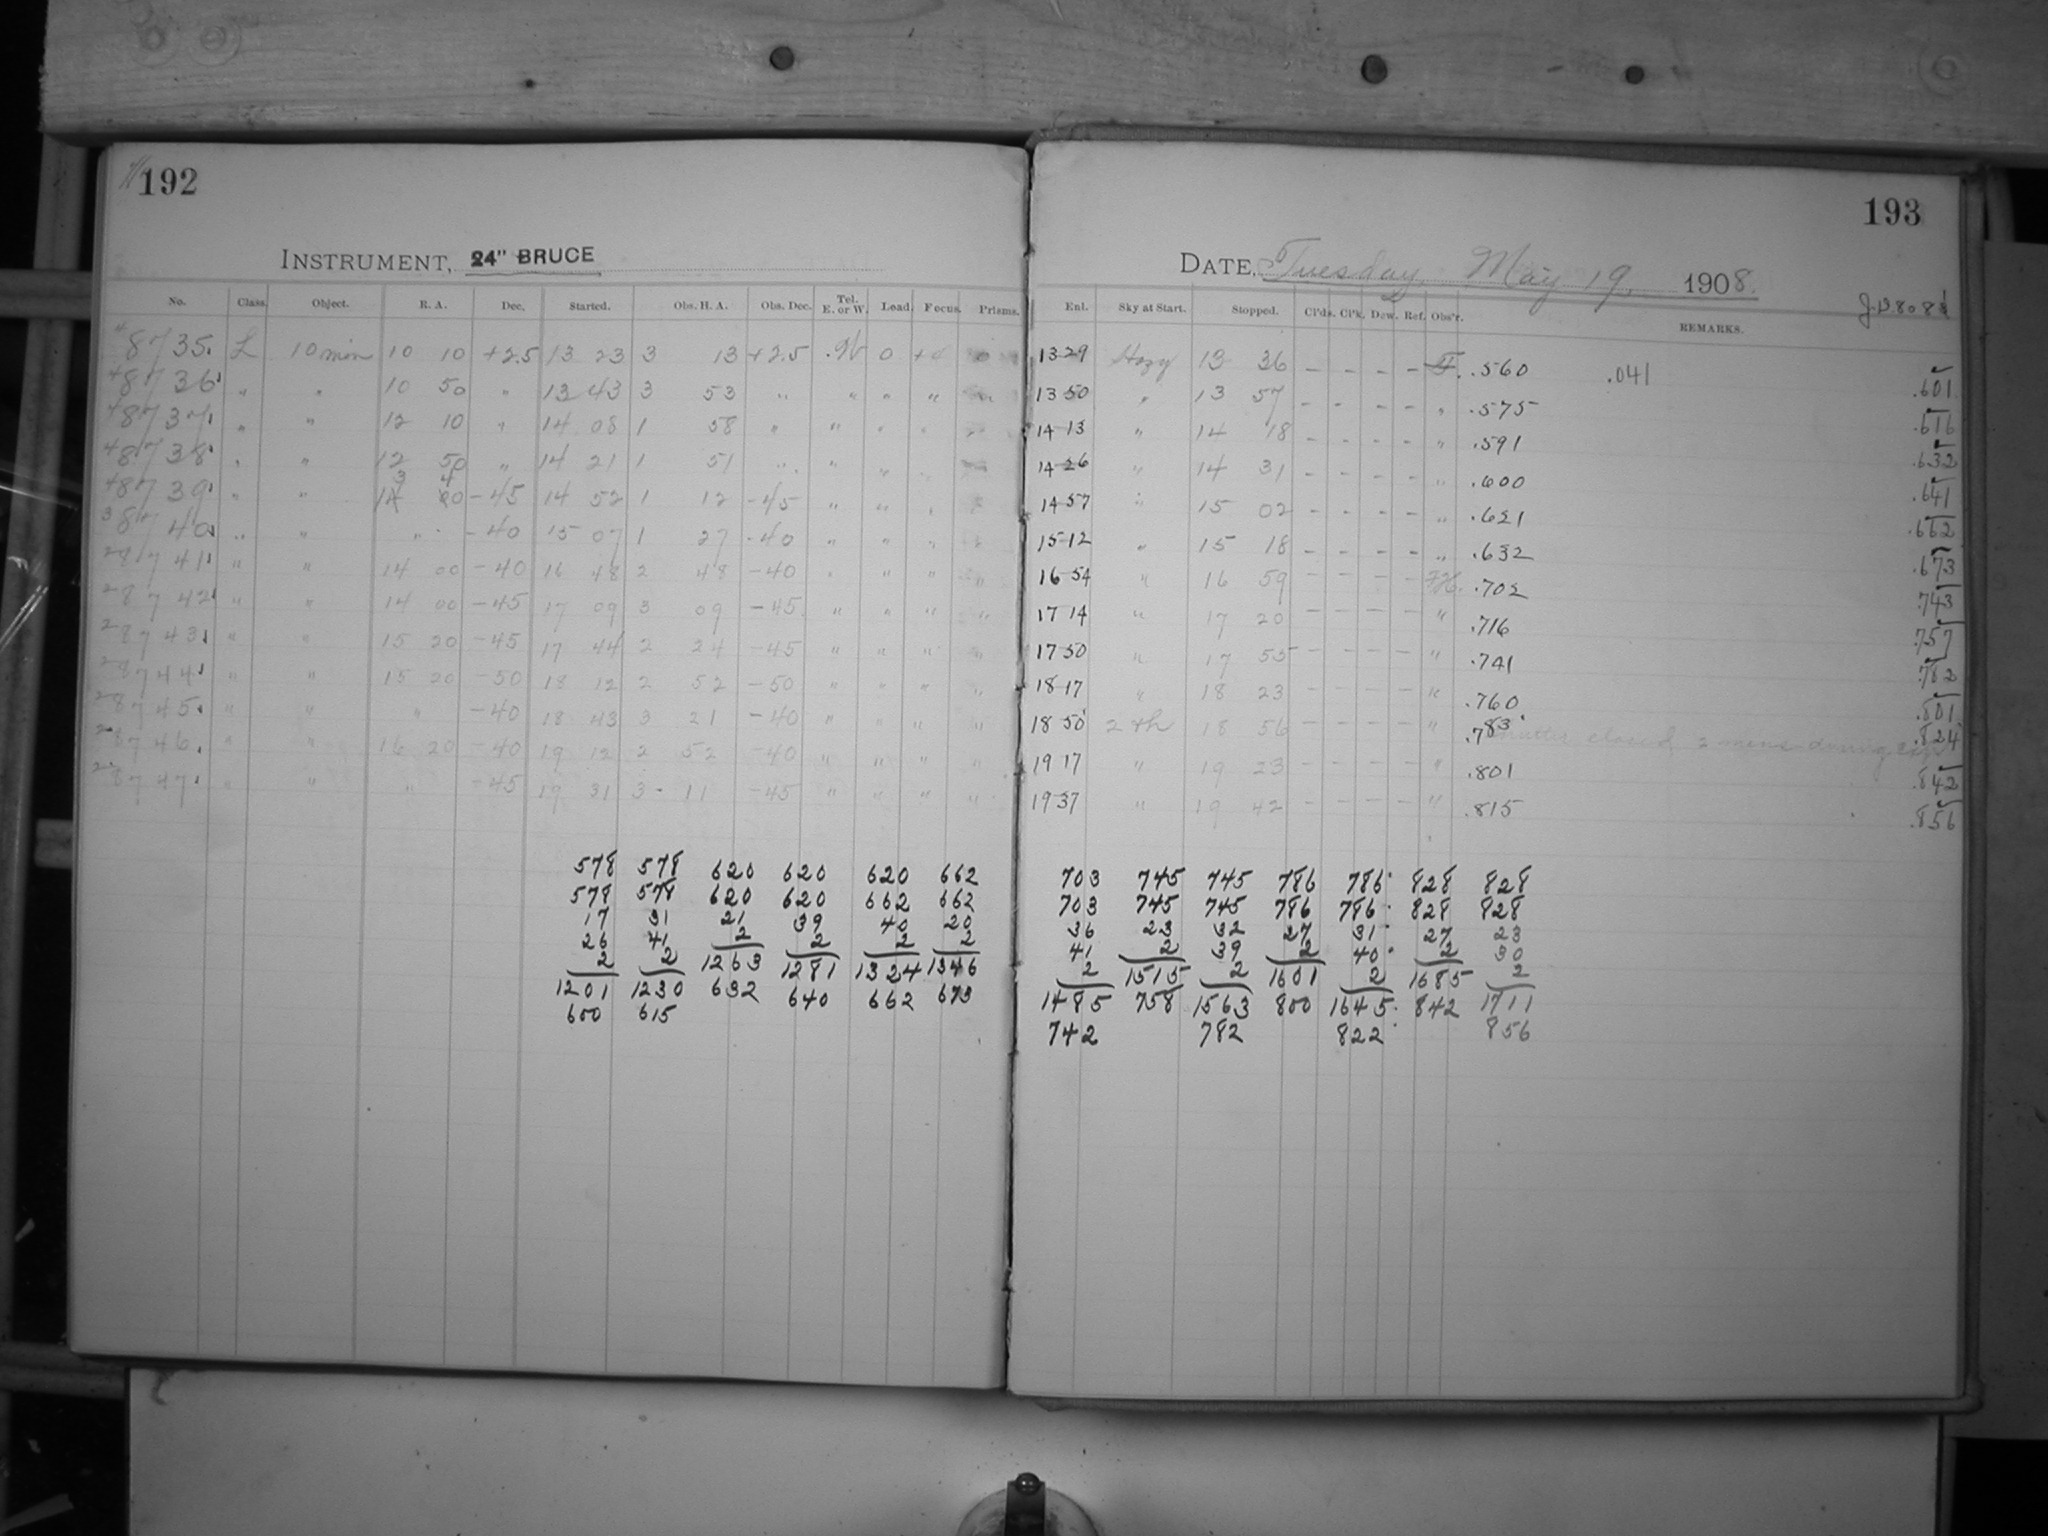 192
193
INSTRUMENT, 24" BRUCE
DATE, Tuesday May 19, 1908.
No. Class. Object. R. A. Dec. Started. Obs. H. A. Obs. Dec. Tel. E. or W. Lead. Focus. Prisms. Enl. Sky at Start. Stopped. Cl'ds. Cl'k. Dew. Ref. Obs'r. REMARKS.
8735 L 10 min 10 10 +2.5 13 23 3 13 +2.5 W 0 0 13 29 Hazy 13 36 - - - - .560 .041 .601
8736 " " 10 50 " 13 43 3 53 " " " " 13 50 " 13 57 - - - - " .575 .616
8737 " " 12 10 " 14 08 1 58 " " " " 14 13 " 14 18 - - - - " .591 .632
8738 " " 12 50 " 14 21 1 51 " " " " 14 26 " 14 31 - - - - " .600 .641
8739 " " -45 14 52 1 12 -45 " " " 14 57 " 15 02 - - - - " .621 .662
8740 " " " -40 15 07 1 27 -40 " " " 15 12 " 15 18 - - - - " .632 .673
8741 " " 14 00 -40 16 48 2 48 -40 " " " " 16 54 " 16 59 - - - - .702 .743
8742 " " 14 00 -45 17 09 3 09 -45 " " " " 17 14 " 17 20 - - - - " .716 .757
8743 " " 15 20 -45 17 44 2 24 -45 " " " " 17 50 " 17 55 - - - - " .741 .782
8744 " " 15 20 -50 18 12 2 52 -50 " " " " 18 17 " 18 23 - - - - " .760 .801
8745 " " " -40 18 43 3 21 -40 " " " " 18 50 18 56 - - - - " .783 shutter closed 2 mins during exp. .824
8746 " " 16 20 -40 19 12 2 52 -40 " " " " 19 17 " 19 23 - - - - " .801 .842
8747 " " " -45 19 31 3 11 -45 " " " " 19 37 " 19 42 - - - - " .815 .856
578 578 620 620 620 662 703 745 745 786 786 828 828
578 578 620 620 662 662 703 745 745 786 786 828 828
17 31 21 39 40 20 36 23 32 27 31 27 23
26 41 2 2 2 2 41 2 39 2 40 2 30
2 2 1263 1281 1324 1346 2 1515 2 1601 2 1685 2
1201 1230 632 640 662 673 1485 758 1563 800 1645 842 1711
600 615 742 782 822 856